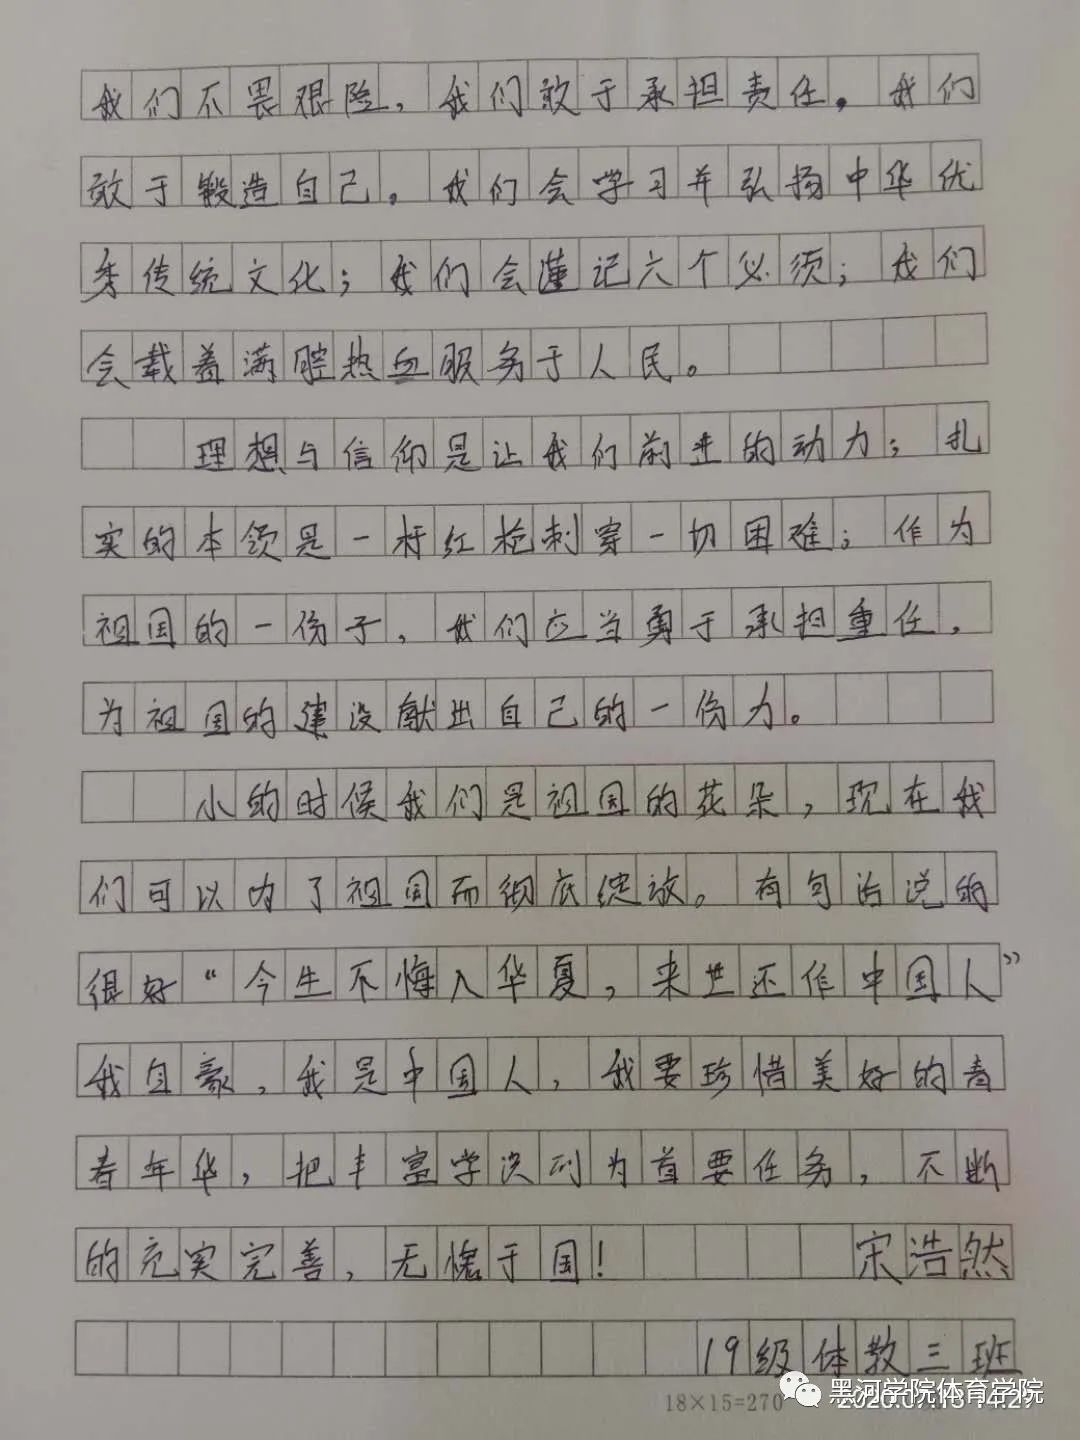 我们不畏艰险，我们敢于承担责任。我们
敢于锻造自己。我们会学习并弘扬中华优
秀传统文化；我们会谨记六个必须；我们
会载着满腔热血服务于人民。
理想与信仰是让我们前进的动力；扎
实的本领是一杆红枪刺穿一切困难；作为
祖国的一份子，我们应当勇于承担重任，
为祖国的建设献出自己的一份力。
小的时候我们是祖国的花朵，现在我
们可以为了祖国而彻底绽放。有句话说的
很好“今生不悔入华夏，来世还作中国人”
我自豪，我是中国人，我要珍惜美好的青
春年华，把丰富学识列为首要任务，不断
的充实完善，无愧于国！ 宋浩然
19级体教三班
18×15=270
黑河学院体育学院